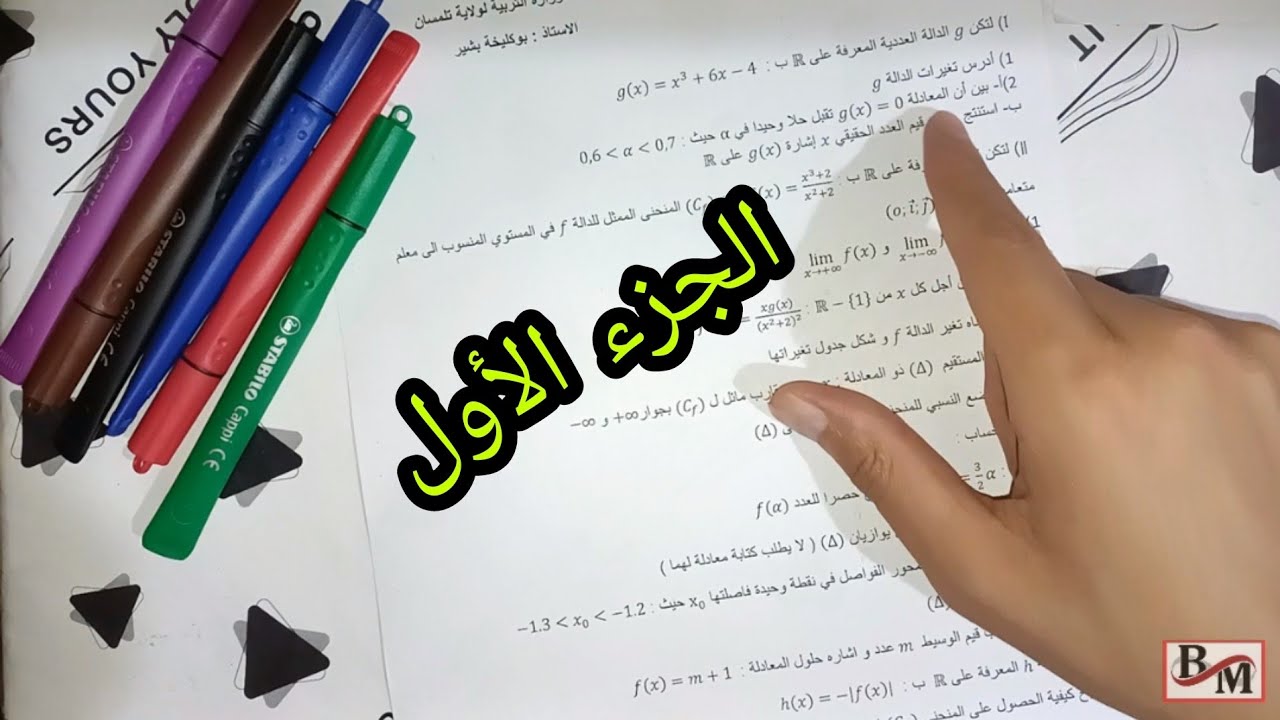 وزارة التربية لولاية تلمسان
الاستاذ : بوكليخة بشير
I) لتكن g الدالة العددية المعرفة على ℝ ب : g(x) = x³ + 6x − 4
1) أدرس تغيرات الدالة g
2)أ- بين أن المعادلة g(x) = 0 تقبل حلا وحيدا في α حيث : 0,6 < α < 0,7
ب- استنتج قيم العدد الحقيقي x إشارة g(x) على ℝ
II) لتكن على ℝ ب : (x) = (x³+2)/(x²+2) (C_f) المنحنى الممثل للدالة f في المستوي المنسوب الى معلم
(o; i⃗; j⃗)
1) lim x→−∞ و lim x→+∞ f(x)
أجل كل x من ℝ − {1} : = xg(x)/(x²+2)²
تغير الدالة f و شكل جدول تغيراتها
المستقيم (Δ) ذو المعادلة : مائل ل (C_f) بجوار +∞ و −∞
النسبي (Δ)
: = 3/2 α حصرا للعدد f(α)
يوازيان (Δ) ( لا يطلب كتابة معادلة لهما )
الفواصل في نقطة وحيدة فاصلتها x₀ حيث : −1.3 < x₀ < −1.2
(Δ)
قيم الوسيط m عدد و اشاره حلول المعادلة : f(x) = m + 1
h المعرفة على ℝ ب : h(x) = −|f(x)|
كيفية الحصول على
الجزء الأول
YOURS
IT
STABILO Cappi CE
STABILO Cappi CE
BM